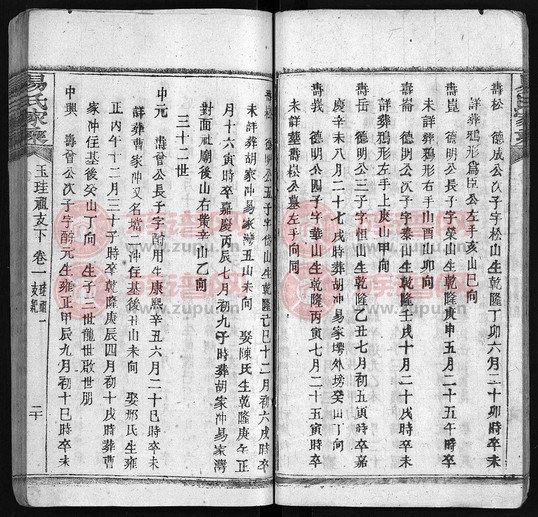 壽松 德成公次子字松山生乾隆丁卯六月二十卯時卒
詳葬鴉形爲臣公左手亥山巳向
壽崑 德明公長子字榮山生乾隆庚申五月二十五午時卒
未詳葬鴉形右手山酉山卯向
壽嵩 德明公次子字泰山生乾隆壬戌十月二十戌時卒
詳葬鴉形左手上庚山甲向
壽岳 德明公三子字恒山生乾隆乙丑七月初五寅時卒嘉
慶辛未八月二十七戌時葬胡家冲易家塝外塝癸山丁向
壽峩 德明公四子字華山生乾隆丙寅七月二十五寅時卒
未詳葬壽松公墓左手向同
壽 德明公五子字 山生乾隆己巳十二月初六戌時卒
未詳葬胡家冲易家 五山未向 娶陳氏生乾隆庚午正
月十六寅時卒嘉慶丙辰七月初九子時葬胡家冲易家灣
對面社廟後山右 辛山乙向
三十二世
中元 壽 公長子字 用生康熙辛丑六月二十巳時卒未
詳葬曹家冲又祖 冲任基後 山未向 娶邢氏生雍
正丙午十二月三十子時卒乾隆庚辰四月初十戌時葬曹
家冲任基後癸山丁向 生子三世龍世啟世朋
中興 壽 公次子字 元生雍正甲辰九月初十巳時卒未
易氏家乘
玉珪祖支下 卷一 珪祖一支紀
二十
族譜網
www.zupu.cn